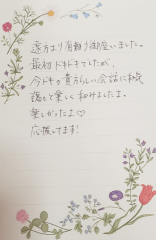 遠方より有難う御座いました。
最初ドキドキでしたが、
今ドキの貴方らしい会話に和気
譪して楽しく和みましたよ。
楽しかったよ♡
応援してます!